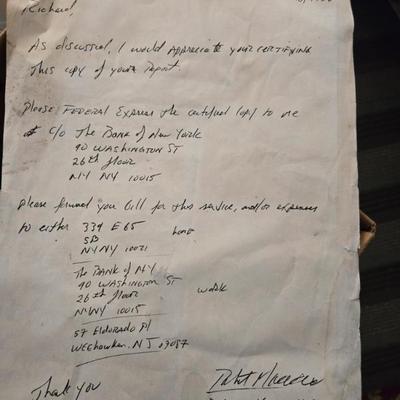 Richard,
As discussed, I would appreciate your certifying
this copy of your report.
Please Federal Express the certified copy to me
at c/o The Bank of New York
90 Washington St
26th floor
NY NY 10015
Please forward you bill for this service, and/or expenses
to either 339 E 65 home
5B
NY NY 10021
The Bank of NY
90 Washington St
26th floor work
NY NY 10015
57 Eldorado Pl
Weehawken, NJ 07087
Thank you